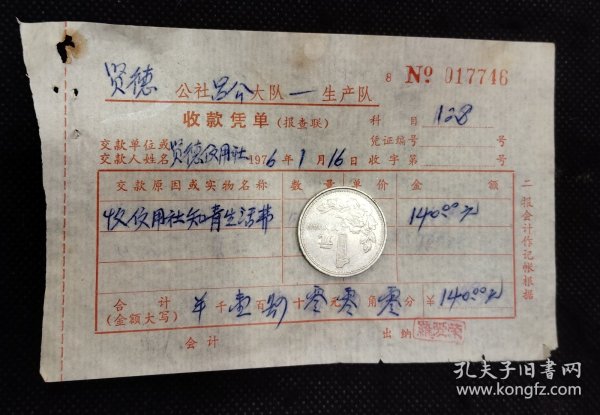 贤德 公社吕公大队一生产队
8 № 017746
收款凭单(报查联)
科目 128
交款单位或
交款人姓名 贤德信用社 1976年1月16日 收字第 号
凭证编号 号
交款原因或实物名称 数量 单价 金额
收信用社知青生活费 140.00元
合计
(金额大写) 千壹百肆十零元零角零分 ¥140.00元
会计 出纳
二报会计作记帐根据
孔夫子旧书网
www.kongfz.com